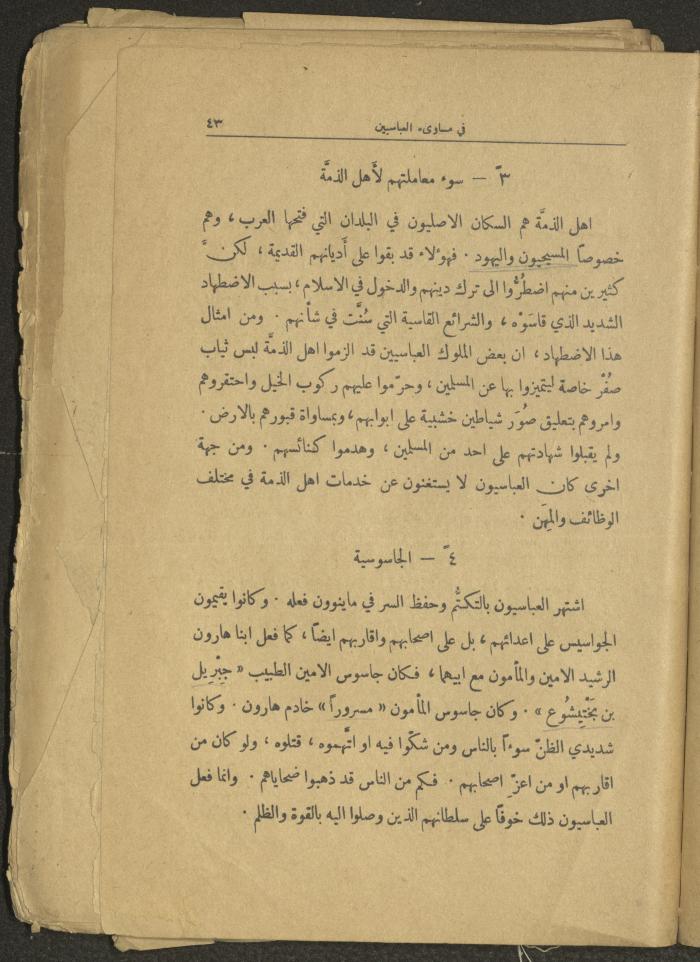 في مساوىء العباسيين ٤٣
٣ً — سوء معاملتهم لأَهل الذمَّة
اهل الذمَّة هم السكان الاصليون في البلدان التي فتحها العرب ، وهم
خصوصاً المسيحيون واليهود . فهوءلاء قد بقوا على أَديانهم القديمة ، لكنَّ
كثيرين منهم اضطُرُّوا الى ترك دينهم والدخول في الاسلام ، بسبب الاضطهاد
الشديد الذي قاسَوْه ، والشرائع القاسية التي سُنَّت في شأنهم . ومن امثال
هذا الاضطهاد ، ان بعض الملوك العباسيين قد الزموا اهل الذمَّة لبس ثياب
صُفْر خاصة ليتميزوا بها عن المسلمين ، وحرّموا عليهم ركوب الخيل واحتقروهم
وامروهم بتعليق صُوَر شياطين خشبية على ابوابهم ، وبمساواة قبورهم بالارض .
ولم يقبلوا شهادتهم على احد من المسلمين ، وهدموا كنائسهم . ومن جهة
اخرى كان العباسيون لا يستغنون عن خدمات اهل الذمة في مختلف
الوظائف والمِهَن .
٤ً — الجاسوسية
اشتهر العباسيون بالتكتُّم وحفظ السر في ماينوون فعله . وكانوا يقيمون
الجواسيس على اعدائهم ، بل على اصحابهم واقاربهم ايضاً ، كما فعل ابنا هارون
الرشيد الامين والمأمون مع ابيهما ، فكان جاسوس الامين الطبيب « جِبْرِيل
بن بَخْتِيشُوع » . وكان جاسوس المأمون « مسروراً » خادم هارون . وكانوا
شديدي الظنّ سوءاً بالناس ومن شكّوا فيه او اتَّهموه ، قتلوه ، ولو كان من
اقاربهم او من اعزّ اصحابهم . فكم من الناس قد ذهبوا ضحاياهم . وانما فعل
العباسيون ذلك خوفاً على سلطانهم الذين وصلوا اليه بالقوة والظلم .